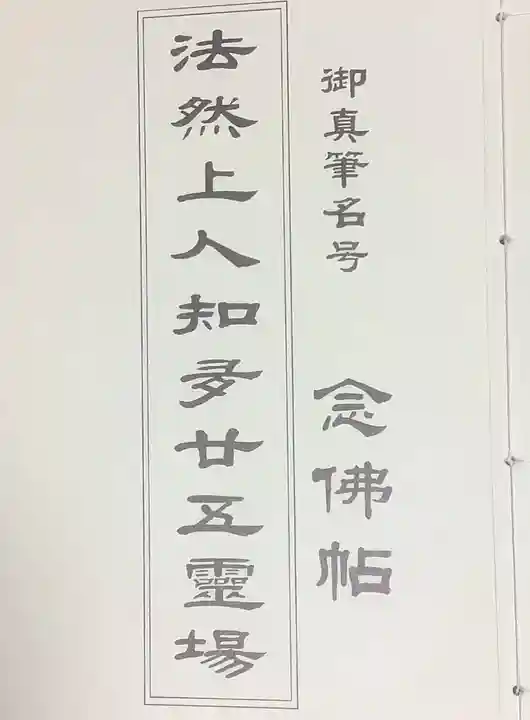 御真筆名号 念佛帖
法然上人知多廿五靈場